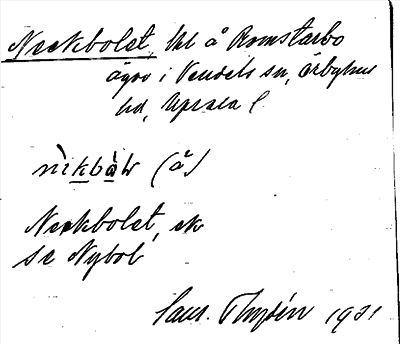 Neckbolet, Ul å Romstarbo
ägor i Vendels sn, Örbyhus
hd, Upsala l
nìkbàlv (å)
Neckbolet, ek
se Nybol
Sam. Thydén 1921